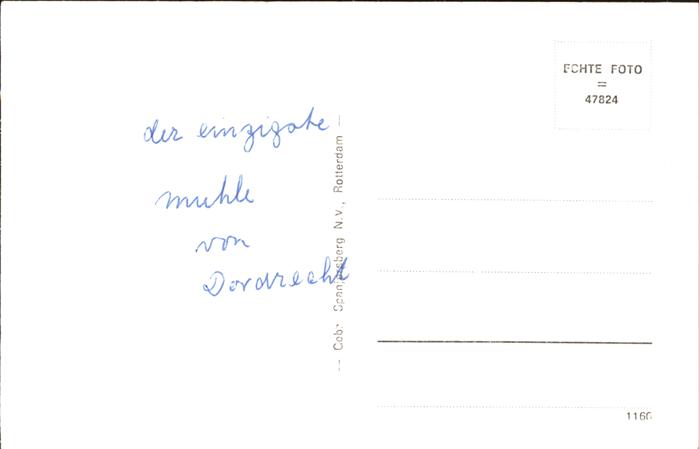 der einzigste
muhle
von
Dordrecht
— Gebr. Spanjersberg N.V., Rotterdam —
ECHTE FOTO
=
47824
1166